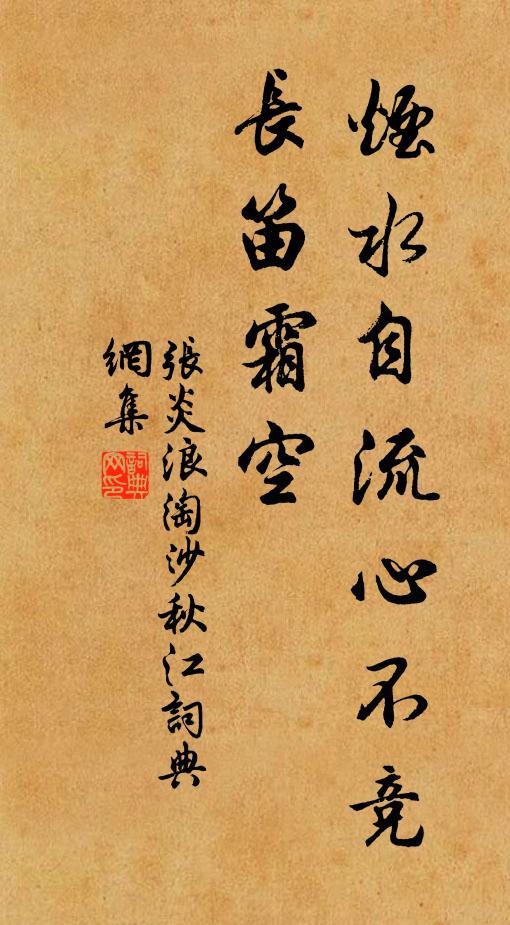 煙水自流心不竞
長笛霜空
張炎浪淘沙秋江詞典
網集
詞典网印